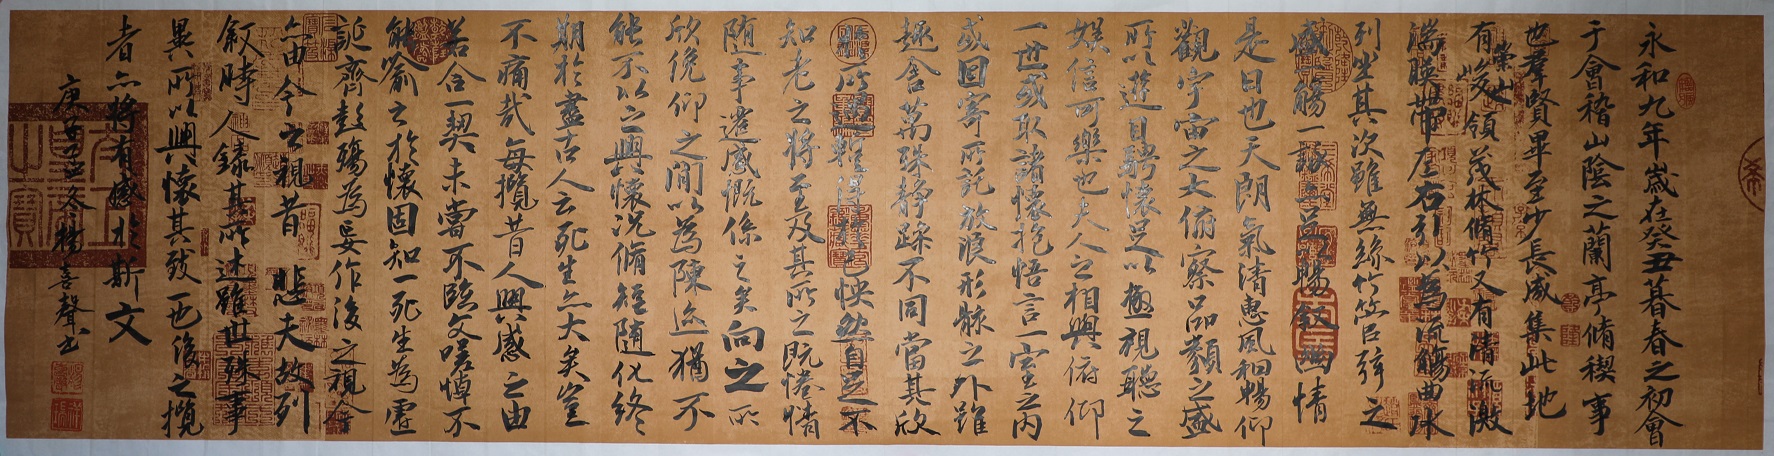 永和九年歲在癸丑暮春之初會
于會稽山陰之蘭亭脩稧事
也羣賢畢至少長咸集此地
有崇山峻領茂林脩竹又有清流激
湍暎帶左右引以為流觴曲水
列坐其次雖無絲竹管弦之
盛一觴一詠亦足以暢敘幽情
是日也天朗氣清惠風和暢仰
觀宇宙之大俯察品類之盛
所以遊目騁懷足以極視聽之
娛信可樂也夫人之相與俯仰
一世或取諸懷抱悟言一室之內
或因寄所託放浪形骸之外雖
趣舍萬殊靜躁不同當其欣
於所遇暫得於己怏然自足不
知老之將至及其所之既惓情
隨事遷感慨係之矣向之所
欣俛仰之閒以為陳迹猶不
能不以之興懷況脩短隨化終
期於盡古人云死生亦大矣豈
不痛哉每攬昔人興感之由
若合一契未嘗不臨文嗟悼不
能喻之於懷固知一死生為虛
誕齊彭殤為妄作後之視今
亦由今之視昔悲夫故列
敘時人錄其所述雖世殊事
異所以興懷其致一也後之攬
者亦將有感於斯文
庚子孟冬楊喜聲書